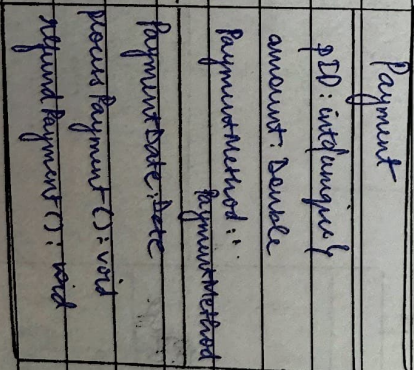 Payment
pID: int{unique}
amount: Double
PaymentMethod:
PaymentMethod
PaymentDate: Date
processPayment(): void
refundPayment(): void